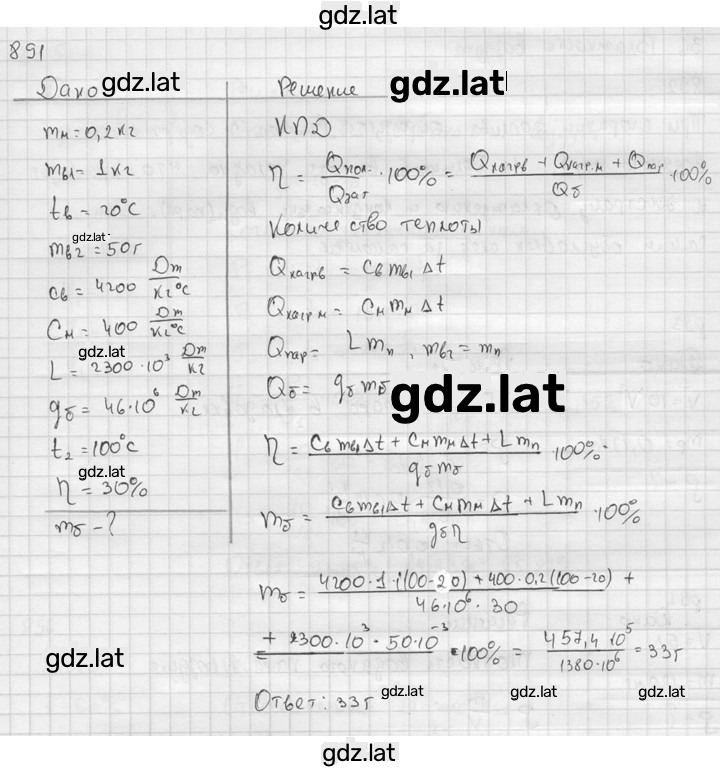 gdz.lat
891
Дано gdz.lat
mм = 0,2 кг
mв1 = 1 кг
tв = 20°C
gdz.lat
mв2 = 50 г
cв = 4200 Дж/кг°C
Cм = 400 Дж/кг°C
gdz.lat
L = 2300·10³ Дж/кг
qб = 46·10⁶ Дж/кг
t₂ = 100°C
gdz.lat
η = 30%
mб - ?
gdz.lat
Решение gdz.lat
КПД
η = Qпол./Qзат · 100% = (Qнагрв + Qнагр.м + Qпар)/Qб · 100%
Количество теплоты
Qнагрв = Cв mв1 Δt
Qнагр.м = Cм mм Δt
Qпар = L mп, mв2 = mп
Qб = qб mб
gdz.lat
η = (Cв mв1 Δt + Cм mм Δt + L mп)/(qб mб) · 100%
mб = (Cв mв1 Δt + Cм mм Δt + L mп)/(qб η) · 100%
mб = (4200·1·(100-20) + 400·0,2(100-20) +)/(46·10⁶·30)
(+ 2300·10³·50·10⁻³)/ · 100% = (457,4·10⁵)/(1380·10⁶) = 33г
Ответ: 33г gdz.lat gdz.lat gdz.lat
gdz.lat